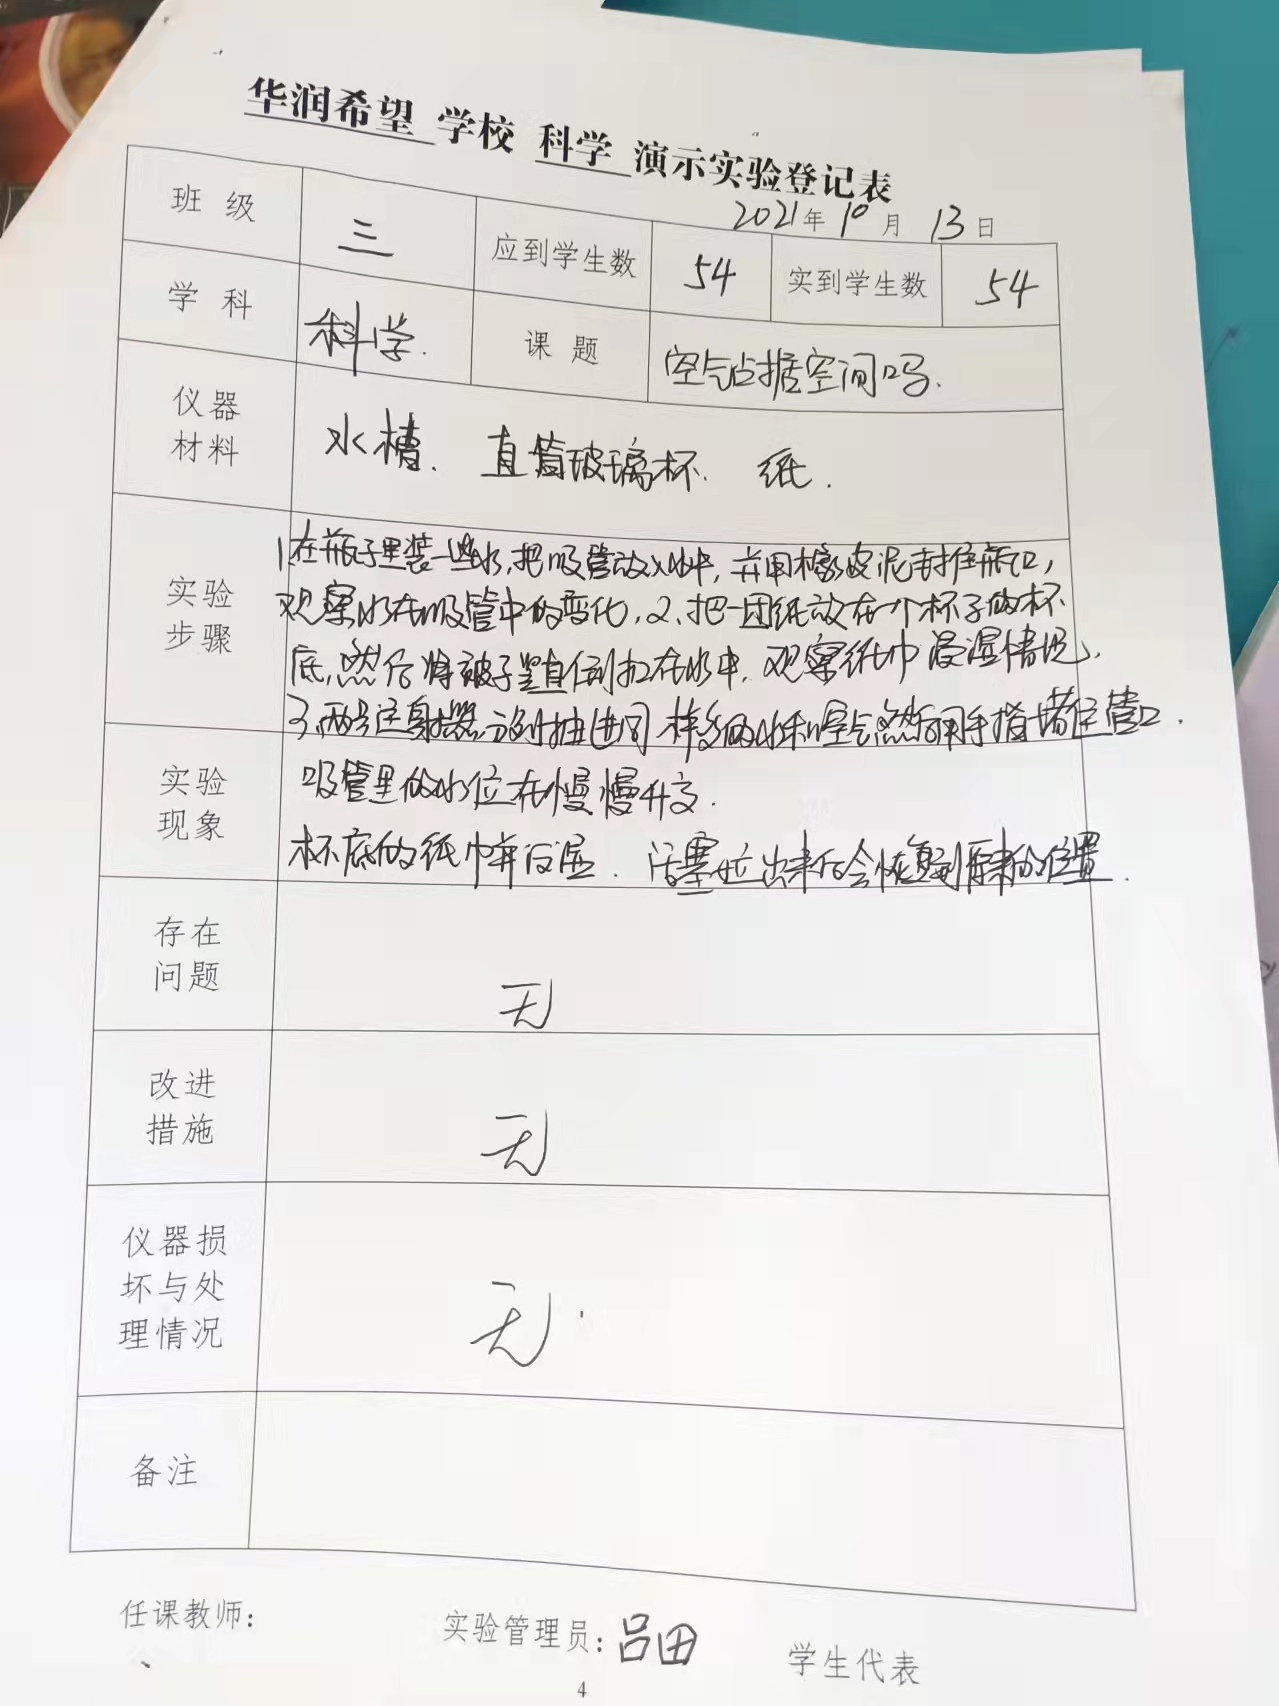 华润希望 学校 科学 演示实验登记表
2021年10月13日
班级 三 应到学生数 54 实到学生数 54
学科 科学. 课题 空气占据空间吗.
仪器材料 水槽. 直筒玻璃杯. 纸.
实验步骤
1.在瓶子里装一些水,把吸管放入水中,并用橡皮泥封住瓶口,
观察水在吸管中的变化,2、把一团纸放在一个杯子的杯
底,然后将被子竖直倒扣在水中,观察纸巾浸湿情况,
3、两号注射器分别抽进同样多的水和空气然后用手指堵住管口.
实验现象
吸管里的水位在慢慢升高.
杯底的纸巾并没湿. 活塞拉出来后会恢复到原来的位置.
存在问题 无
改进措施 无
仪器损坏与处理情况 无.
备注
任课教师: 实验管理员:吕田 学生代表
4